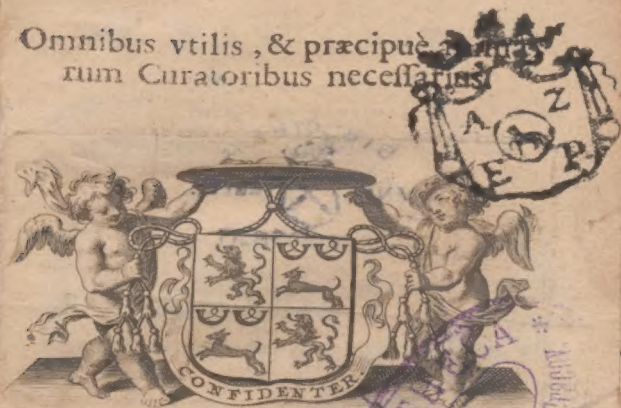 Omnibus vtilis, & præcipuè
rum Curatoribus necessarius.
A Z
E P
CONFIDENTER